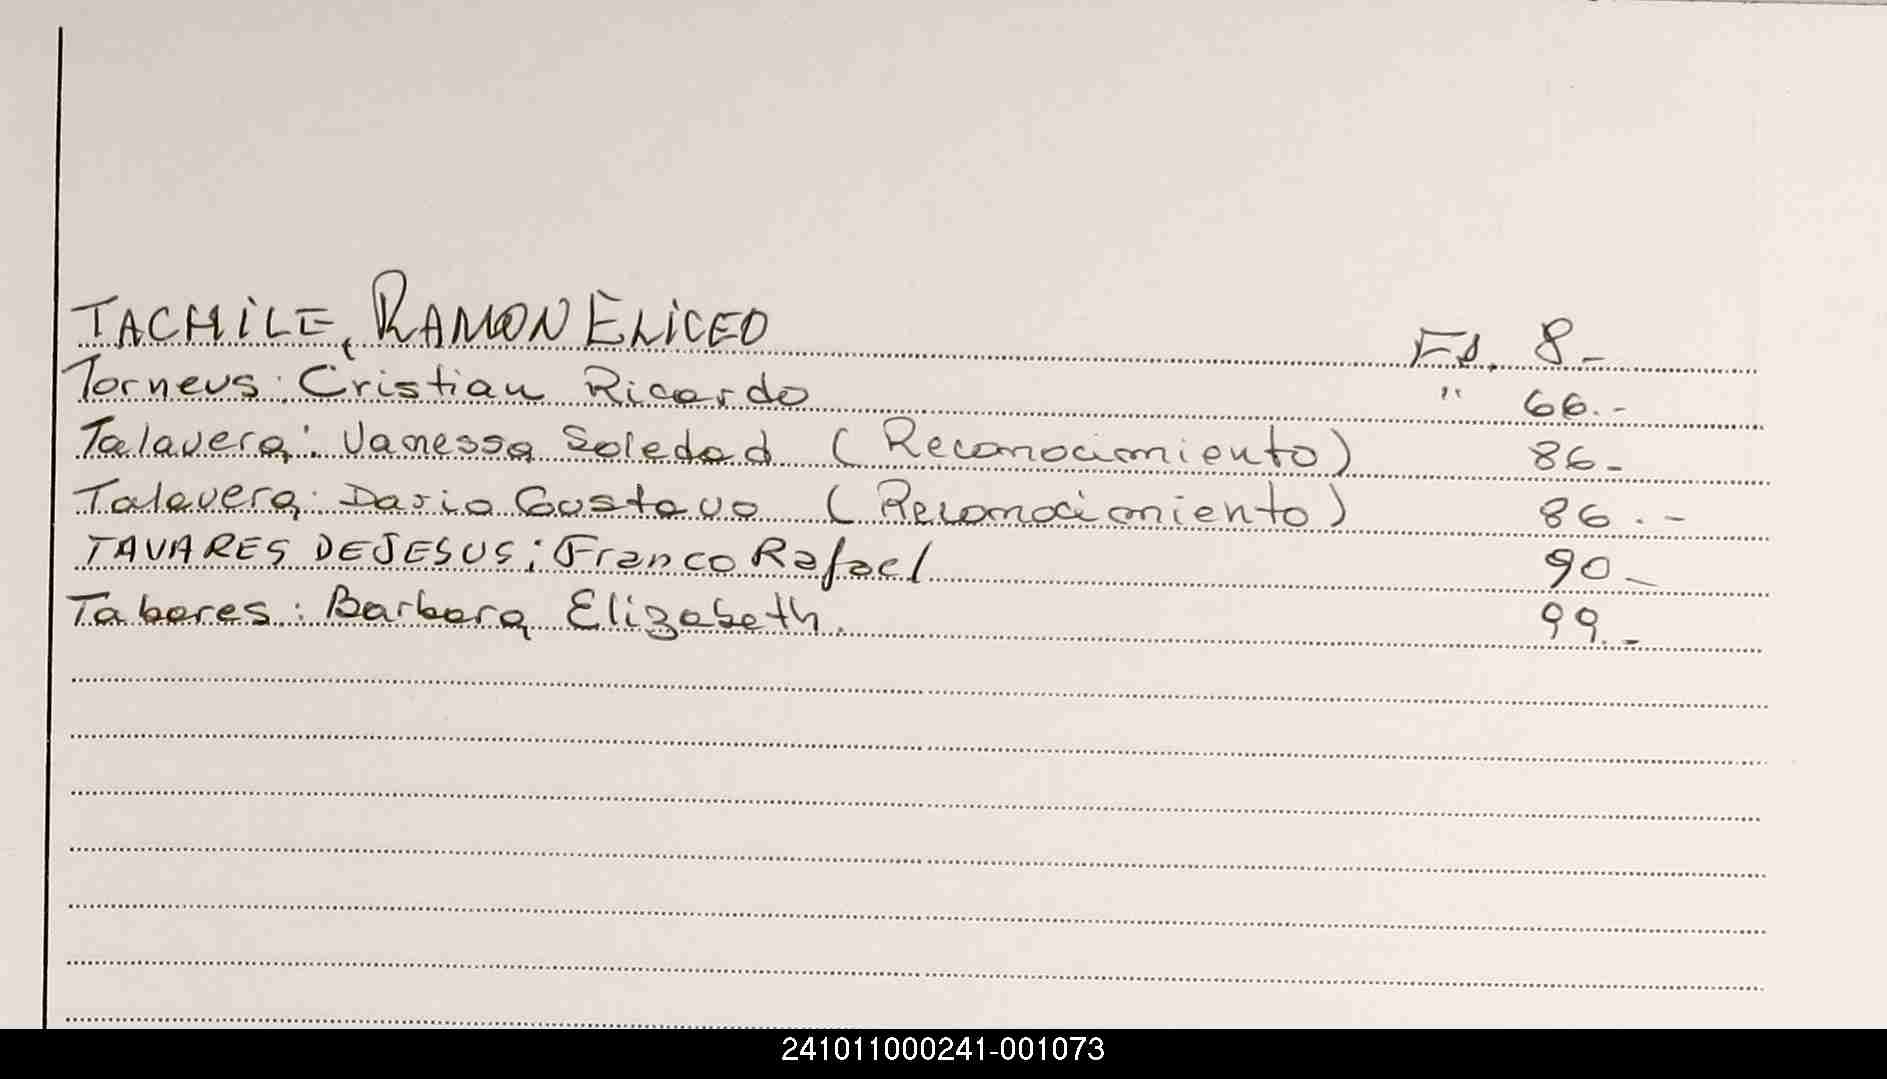 TACHILE, RAMON ELICEO Fs. 8-
Torneus: Cristian Ricardo " 66.-
Talavera: Vanessa Soledad (Reconocimiento) 86-
Talavera: Dario Gustavo (Reconocimiento) 86.-
TAVARES DEJESUS: Franco Rafael 90-
Tabares: Barbara Elizabeth. 99.-
241011000241-001073